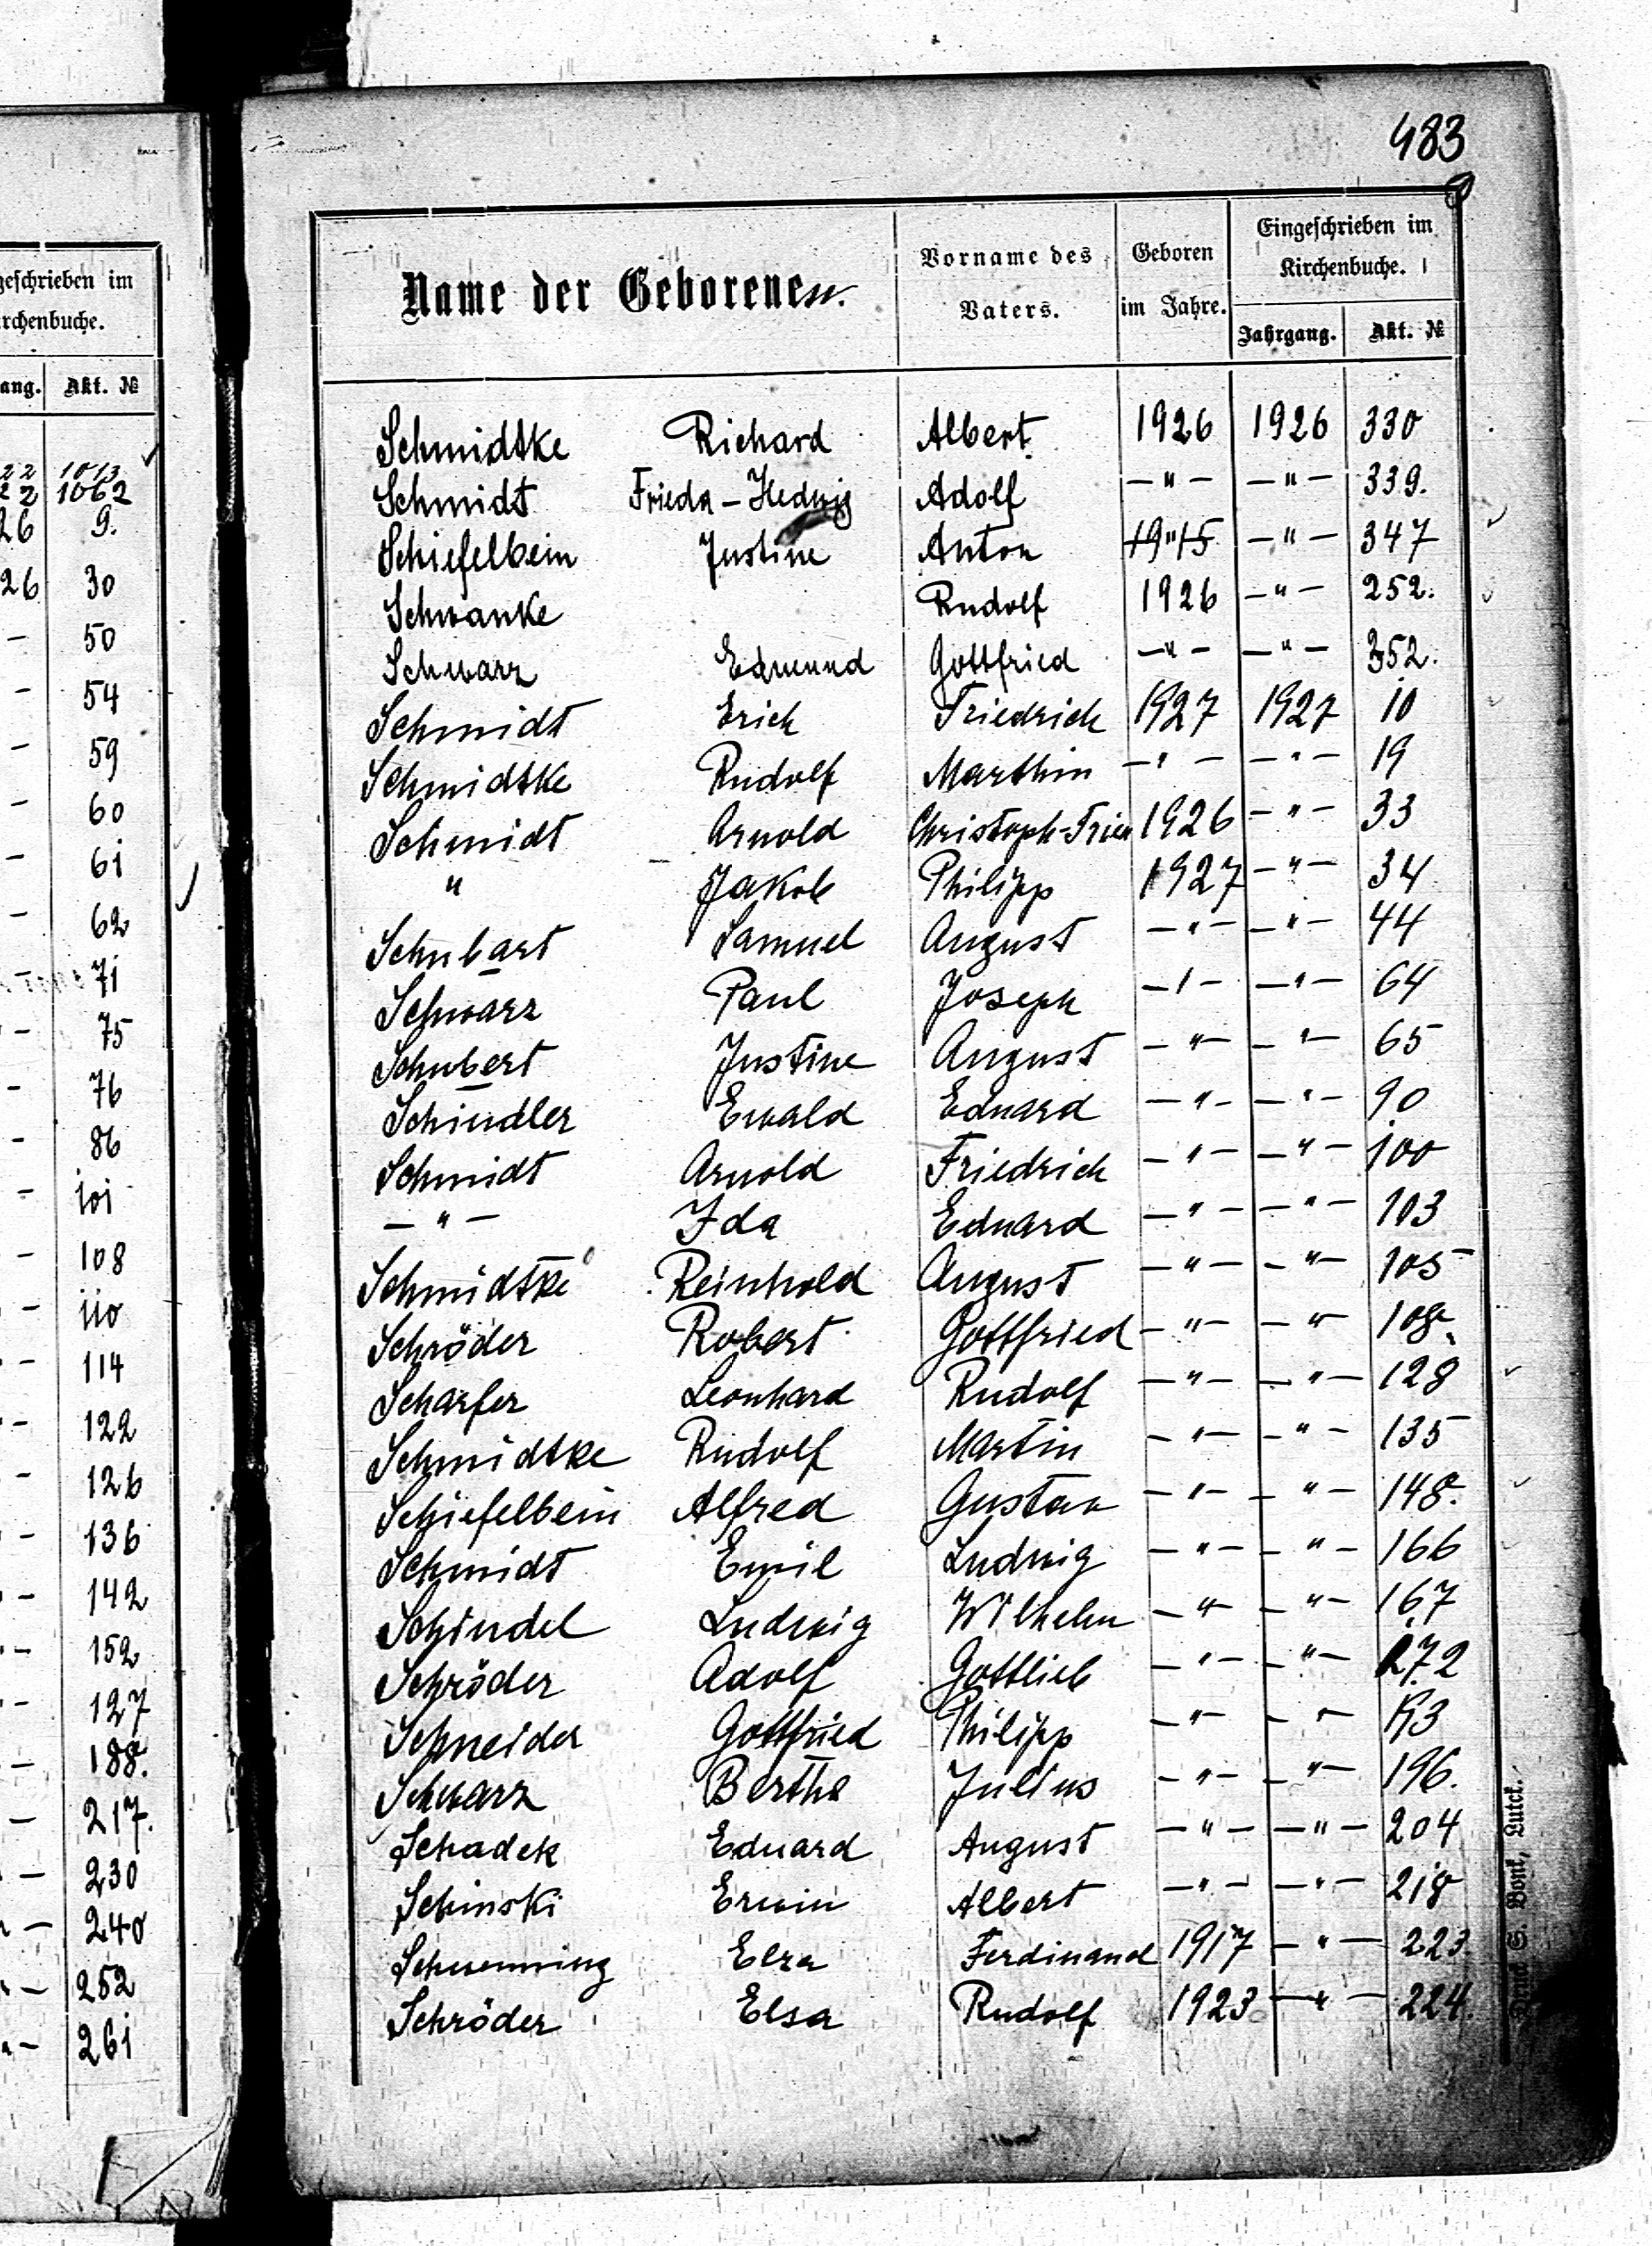 geschrieben im
irchenbuche.
ang. Akt. №
22 1013
22 1062
26 9.
26 30
— 50
— 54
— 59
— 60
— 61
— 62
— 71
— 75
— 76
— 86
— 101
— 108
— 110
— 114
— 122
— 126
— 136
— 142
— 152
— 127
— 188.
— 217.
— 230
— 240
— 252
— 261
483
Name der Geborenen.
Vorname des Vaters.
Geboren im Jahre.
Eingeschrieben im Kirchenbuche.
Jahrgang. Akt. №
Schmidtke Richard Albert 1926 1926 330
Schmidt Frieda-Hedwig Adolf —"— —"— 339.
Schiefelbein Justine Anton 19"15 —"— 347
Schwanke Rudolf 1926 —"— 252.
Schwarz Edmund Gottfried —"— —"— 352.
Schmidt Erich Friedrich 1927 1927 10
Schmidtke Rudolf Marthin —"— —"— 19
Schmidt Arnold Christoph-Fried 1926 —"— 33
" Jakob Philipp 1927 —"— 34
Schubart Samuel August —"— —"— 44
Schwarz Paul Joseph —"— —"— 64
Schubert Justine August —"— —"— 65
Schindler Ewald Eduard —"— —"— 90
Schmidt Arnold Friedrich —"— —"— 100
—"— Ida Eduard —"— —"— 103
Schmidtke Reinhold August —"— —"— 105
Schröder Robert Gottfried —"— —"— 108.
Schärfer Leonhard Rudolf —"— —"— 128
Schmidtke Rudolf Martin —"— —"— 135
Schiefelbein Alfred Gustav —"— —"— 148.
Schmidt Emil Ludwig —"— —"— 166
Schindel Ludwig Wilhelm —"— —"— 167
Schröder Adolf Gottlieb —"— —"— 172
Schneider Gottfried Philipp —"— —"—
Schwarz Bertha Julius —"— —"— 196.
Schadek Eduard August —"— —"— 204
Schinski Erwin Albert —"— —"— 218
Schwenning Elza Ferdinand 1917 —"— 223
Schröder Elsa Rudolf 1923 —"— 224.
Druck S. Bonk, Lutck.